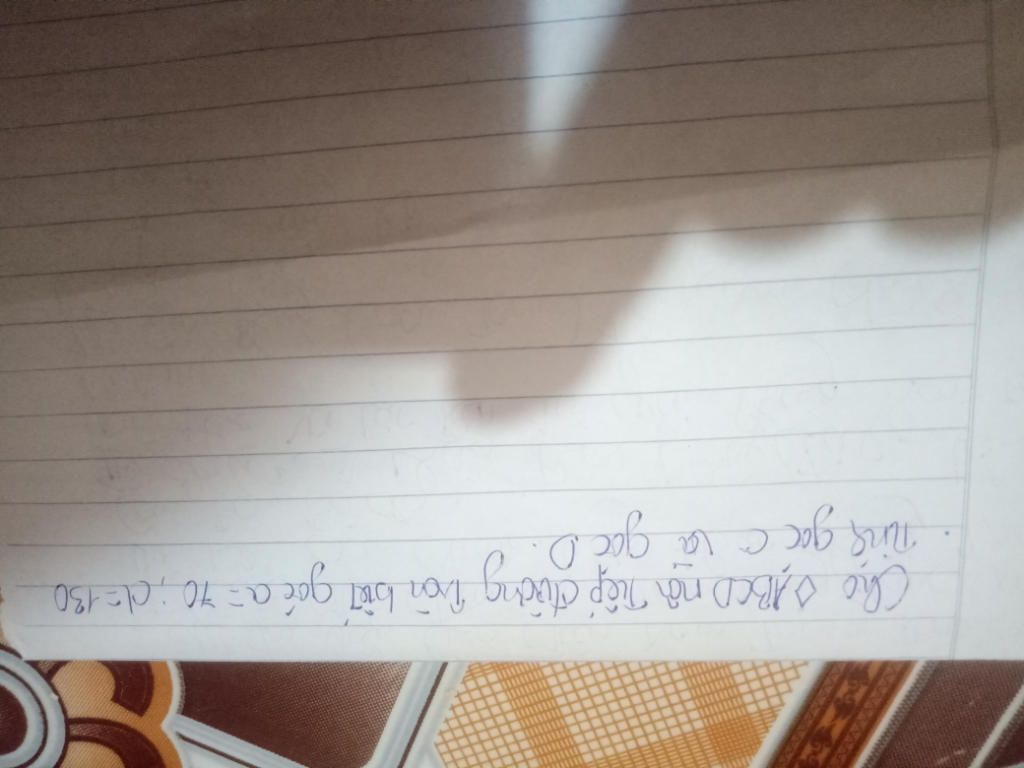 Cho ◊ABCD nội tiếp đường tròn biết góc a = 70; d = 130
Tính góc C và góc D.